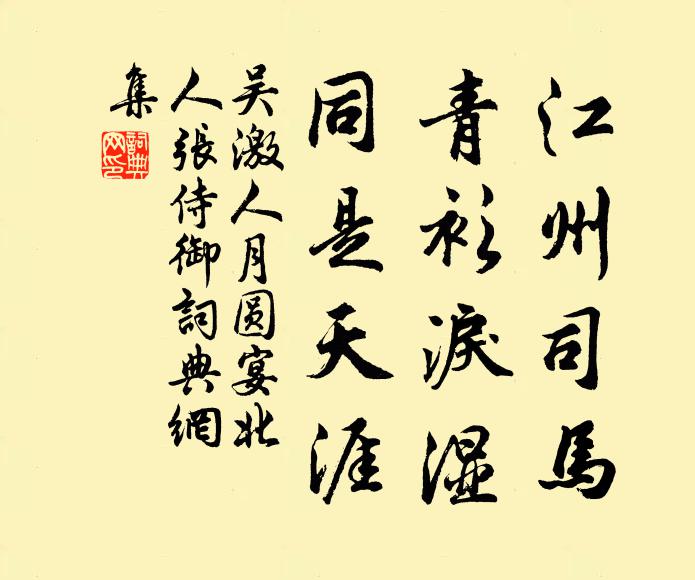 江州司馬
青衫淚濕
同是天涯
吴激人月圆宴北
人張侍御詞典網
集
詞典網印